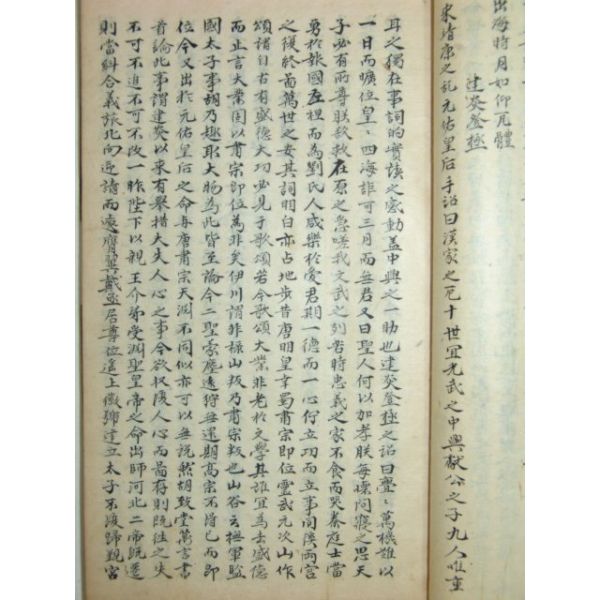 出海時月如仰瓦體
建炎登極
宋靖康之乱元佑皇后手詔曰漢家之厄十世宜光武之中興獻公之子九人唯重
耳之獨在事詞的實讀之感動蓋中興之一助也建炎登極之詔曰亹〻萬機難以
一日而曠位皇〻四海誰可三月而無君又曰聖人何以加孝朕每懷問寢之思天
子必有所尊朕敢救在原之急嗟我文武之列若時忠義之家不食而哭秦庭士當
勇於報國左袒而為劉氏人咸樂於愛君期一德而一心佇立功而立事同徯兩宮
之復終啚萬世之安其詞明白亦占地步昔唐明皇幸蜀肅宗即位靈武元次山作
頌謂自古有盛德大功必見于歌頌若今歌頌大業非老於文學其誰宜為去盛德
而止言大業固以肅宗即位為非矣伊川謂非祿山叛乃肅宗叛也山谷云撫軍監
國太子事胡乃趣取大物為此皆至論今二聖蒙塵遠狩無還期高宗不得已而即
位今又出於元佑皇后之命再唐肅宗天淵不同似亦可以無說然胡致堂萬言書
首論此事謂建炎以來有舉措大失人心之事今欲収復人心而啚存則既往之失
不可不追不可不改一昨陛下以親王介弟受淵聖皇帝之命出師河北二帝既遷
則當糾合義旅北向迎請而遽膺翼戴亟居尊位遥上徽號建立太子不復歸覲宮